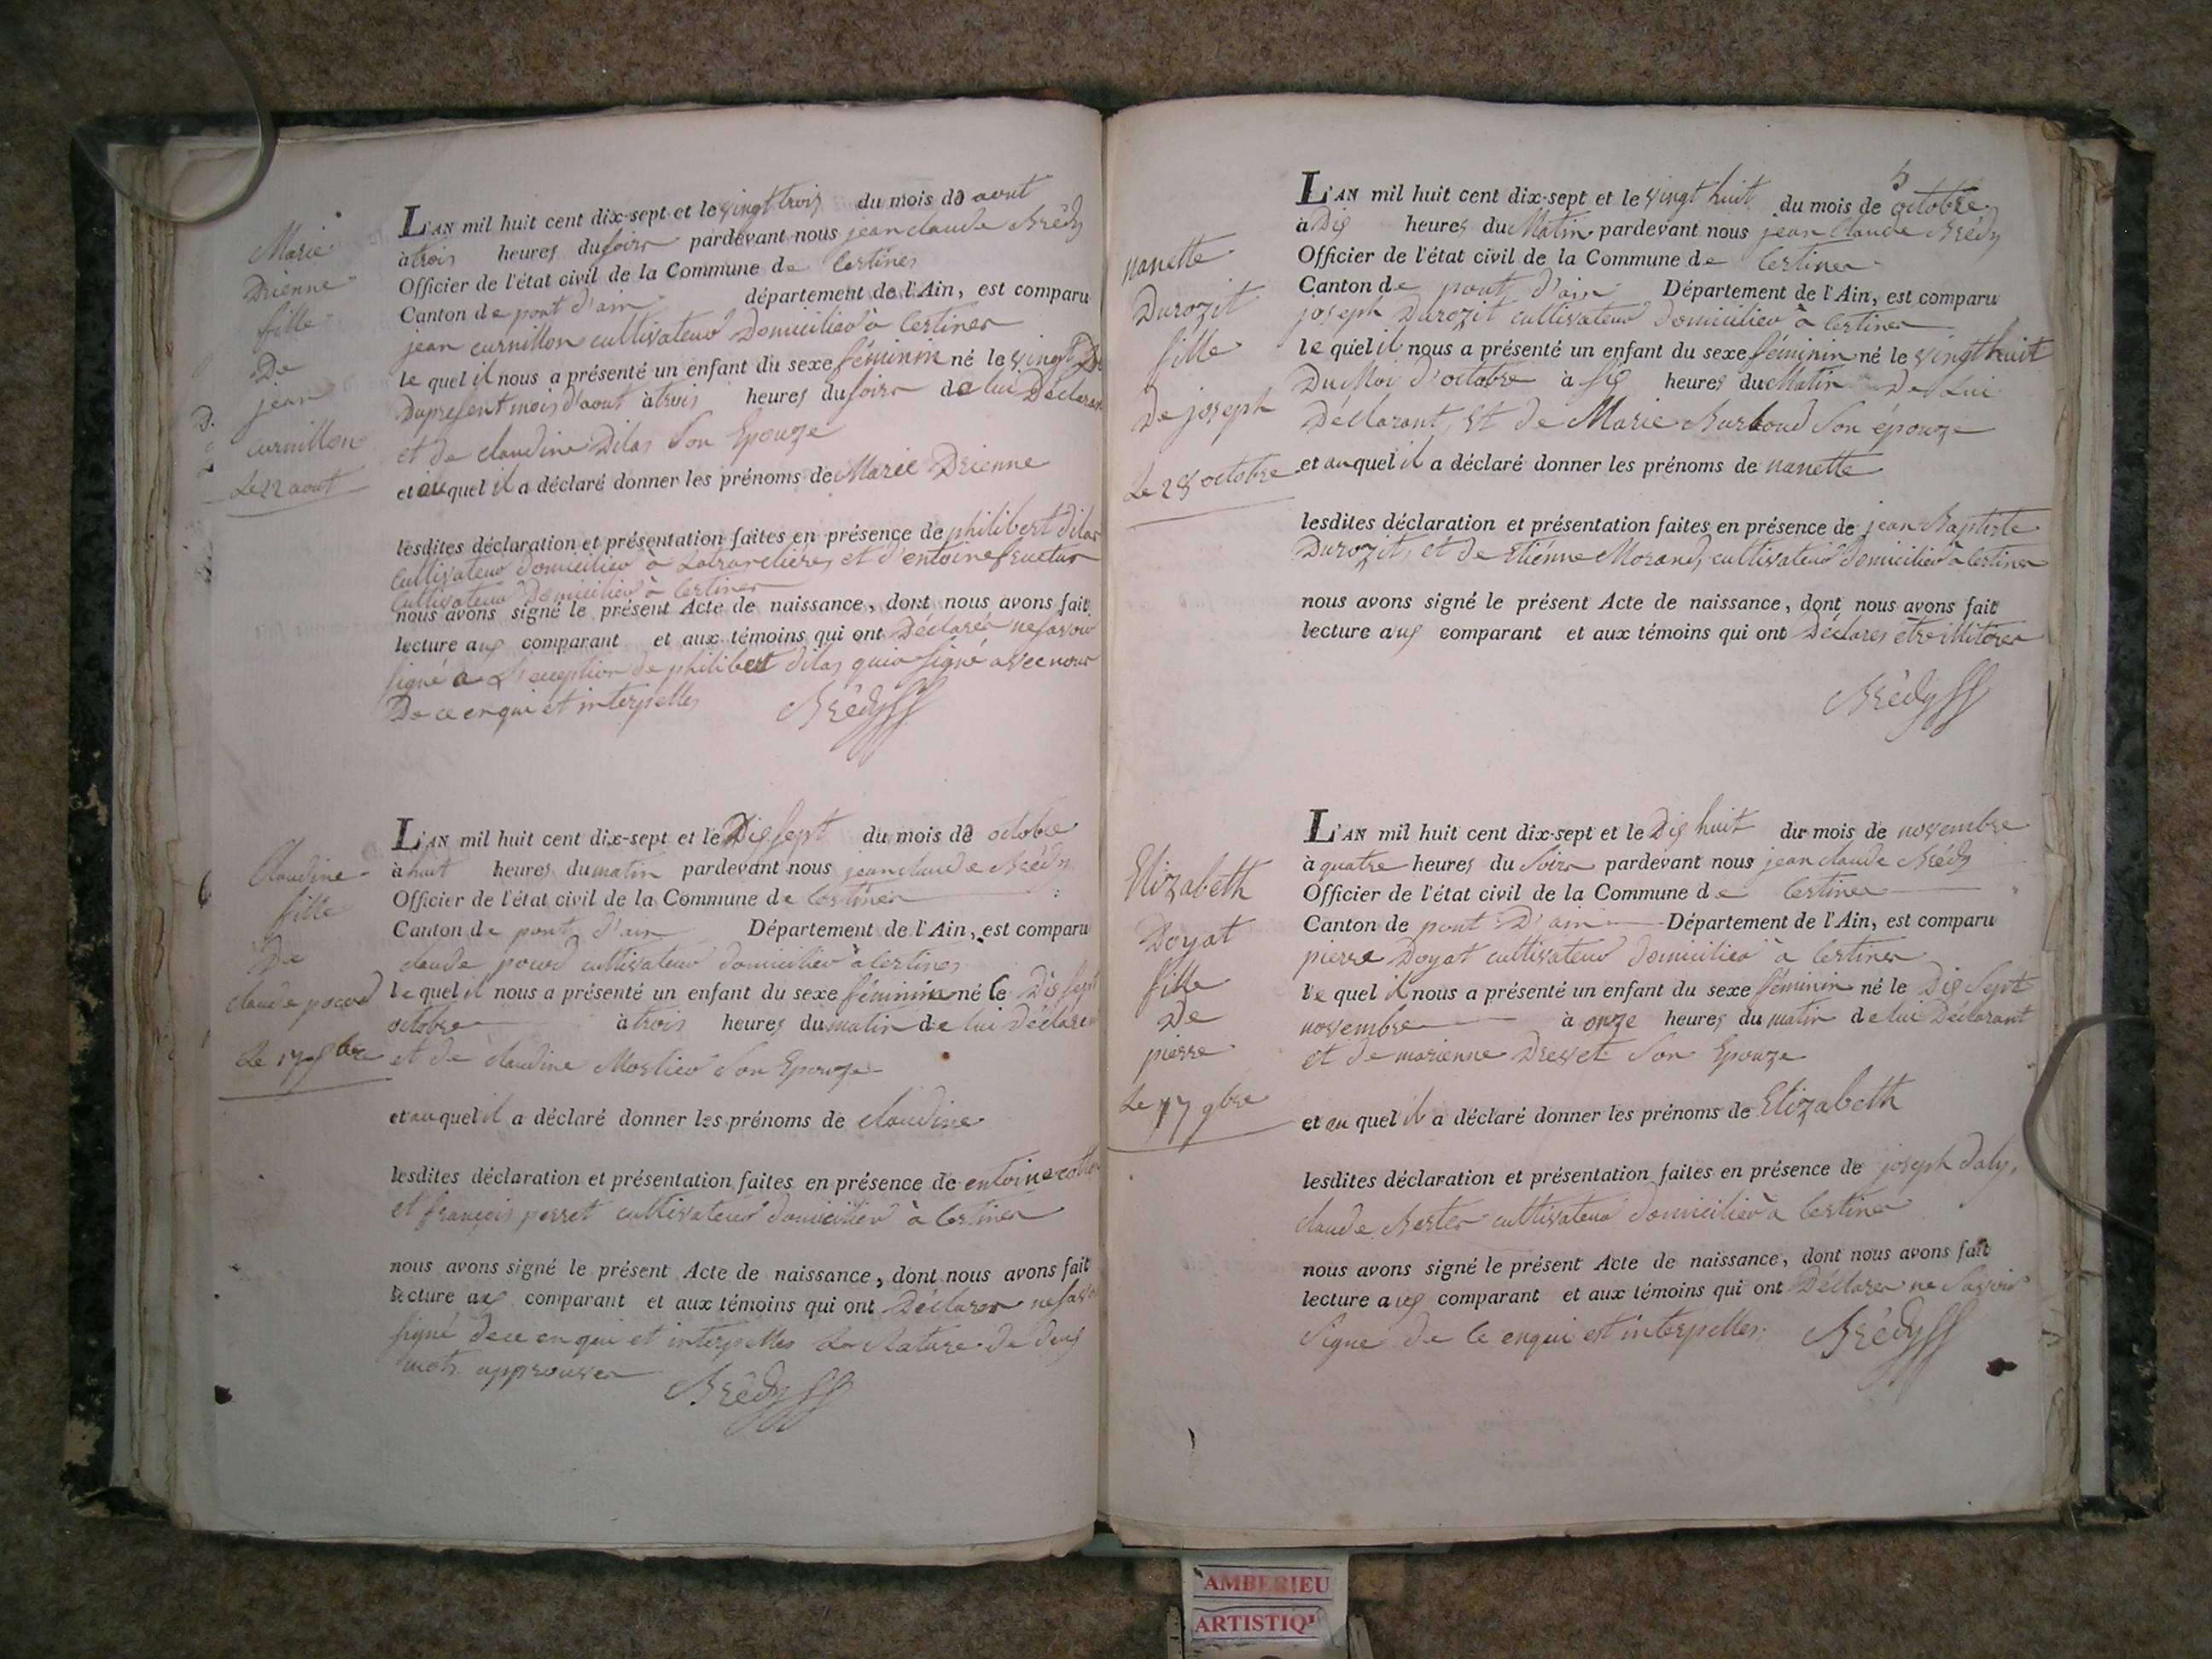 Marie
Drienne
fille
De
jean
curnillon
Le 22 aout
L'AN mil huit cent dix-sept et le vingt trois du mois de aout
à trois heures du soir pardevant nous jean claude Brédy
Officier de l'état civil de la Commune de Certines
Canton de pont d'ain département de l'Ain, est comparu
jean curnillon cultivateur Domicilier à Certines
le quel il nous a présenté un enfant du sexe féminin né le vingt
Du present mois d'aout à trois heures du soir de lui Déclarant
et de claudine Dilas Son Epouze
et au quel il a déclaré donner les prénoms de Marie Drienne
lesdites déclaration et présentation faites en présence de philibert dilas
cultivateur domicilier à et d'entoine
cultivateur Domicilier à Certines
nous avons signé le présent Acte de naissance, dont nous avons fait
lecture aux comparant et aux témoins qui ont Déclarer ne savoir
signé a L'exception de philibert dilas qui a signé avec nous
De ce enqui et interpelles Brédy
Claudine
fille
De
claude pocud
Le 17 8bre
L'AN mil huit cent dix-sept et le Dix sept du mois de octobre
à huit heures du matin pardevant nous jean claude Brédy
Officier de l'état civil de la Commune de Certines
Canton de pont d'ain Département de l'Ain, est comparu
claude cultivateur domicilier à Certines
le quel il nous a présenté un enfant du sexe féminin né le Dix sept
octobre à trois heures du matin de lui déclarant
et de claudine Son Epouze
et au quel il a déclaré donner les prénoms de claudine
lesdites déclaration et présentation faites en présence de entoine
et françois perret cultivateur domicilier à Certines
nous avons signé le présent Acte de naissance, dont nous avons fait
lecture aux comparant et aux témoins qui ont Déclarer ne savoir
signé de ce enqui et interpelles La Rature de deux
mots approuver Brédy
5
nanette
Durozit
fille
De joseph
Le 28 octobre
L'AN mil huit cent dix-sept et le vingt huit du mois de octobre
à Dix heures du Matin pardevant nous jean Claude Brédy
Officier de l'état civil de la Commune de Certines
Canton de pont d'ain Département de l'Ain, est comparu
joseph Durozit cultivateur domicilier à Certines
le quel il nous a présenté un enfant du sexe féminin né le vingt huit
Du Moi d'octobre à six heures du Matin De Lui
Déclarant, Et de Marie Son épouze
et au quel il a déclaré donner les prénoms de nanette
lesdites déclaration et présentation faites en présence de jean Baptiste
Durozit, et de Etiénne Morand, cultivateur domicilier à Certines
nous avons signé le présent Acte de naissance, dont nous avons fait
lecture aux comparant et aux témoins qui ont Déclarer être illitérer
Brédy
Elizabeth
Doyat
fille
De
pierre
Le 17 9bre
L'AN mil huit cent dix-sept et le Dix huit du mois de novembre
à quatre heures du Soir pardevant nous jean claude Brédy
Officier de l'état civil de la Commune de Certines
Canton de pont D'ain Département de l'Ain, est comparu
pierre Doyat cultivateur domicilier à Certines
le quel il nous a présenté un enfant du sexe féminin né le Dix Sept
novembre à onze heures du matin de lui Déclarant
et de marienne Drevet Son Epouze
et au quel il a déclaré donner les prénoms de Elizabeth
lesdites déclaration et présentation faites en présence de joseph daly,
claude cultivateur domicilier à Certines
nous avons signé le présent Acte de naissance, dont nous avons fait
lecture aux comparant et aux témoins qui ont Déclarer ne Savoir
Signe de Ce enqui est interpelles. Brédy
AMBERIEU
ARTISTIQ